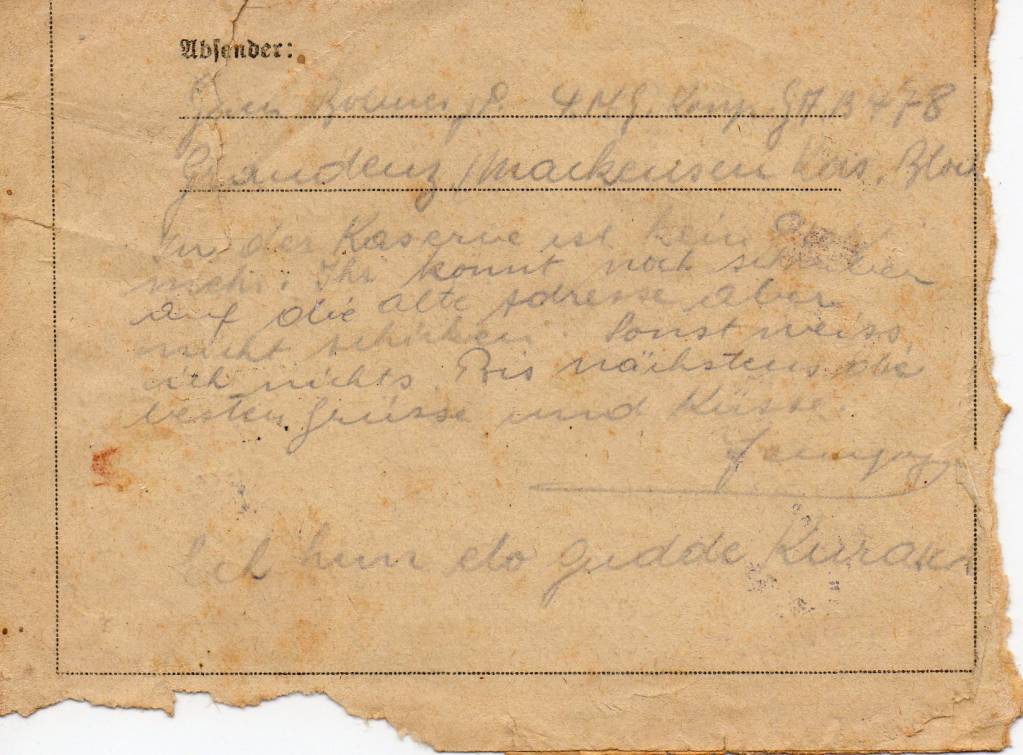 Absender:
4. M.G. Komp. G.A.B 478
Graudenz Mackensen Kas. Block
In der Kaserne ist kein
mehr. Ihr konnt noch schreiben
auf die alte Adresse aber
nicht schicken. Sonst weiss
ich nichts. Bis nächstens die
besten Grüsse und Küsse.
Ich hun elo gudde Kurasch